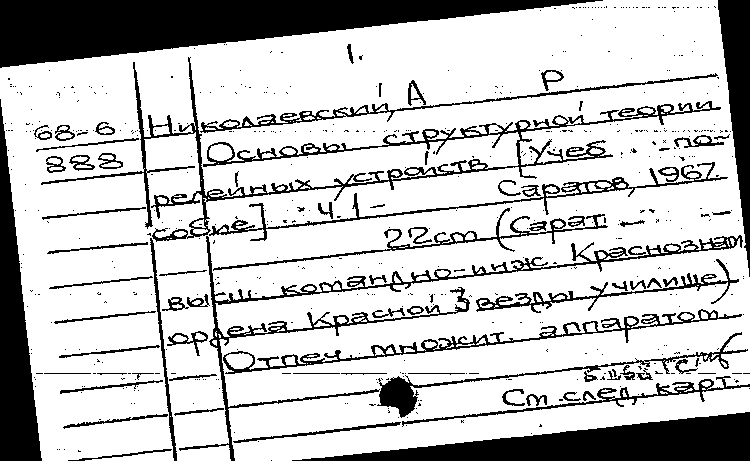 1.
68-6 Николаевский, А Р
888 Основы структурной теории
релейных устройств [Учеб. по-
собие] Ч. 1- Саратов, 1967.
22 cm (Сарат.
высш. командно-инж. Краснознам.
ордена Красной Звезды училище)
Отпеч. множит. аппаратом.
См. след. карт.